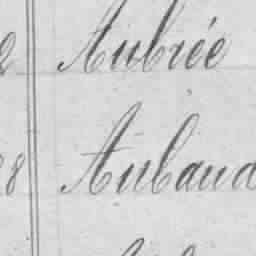 2 Aubrée
28 Aubaud